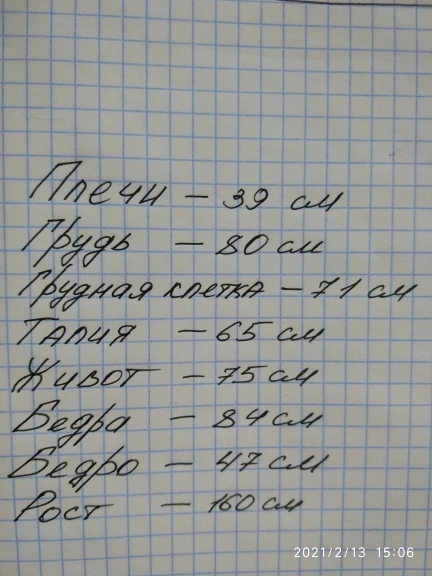 Плечи – 39 см
Грудь – 80 см
Грудная клетка – 71 см
Талия – 65 см
Живот – 75 см
Бедра – 84 см
Бедро – 47 см
Рост – 160 см
2021/2/13 15:06